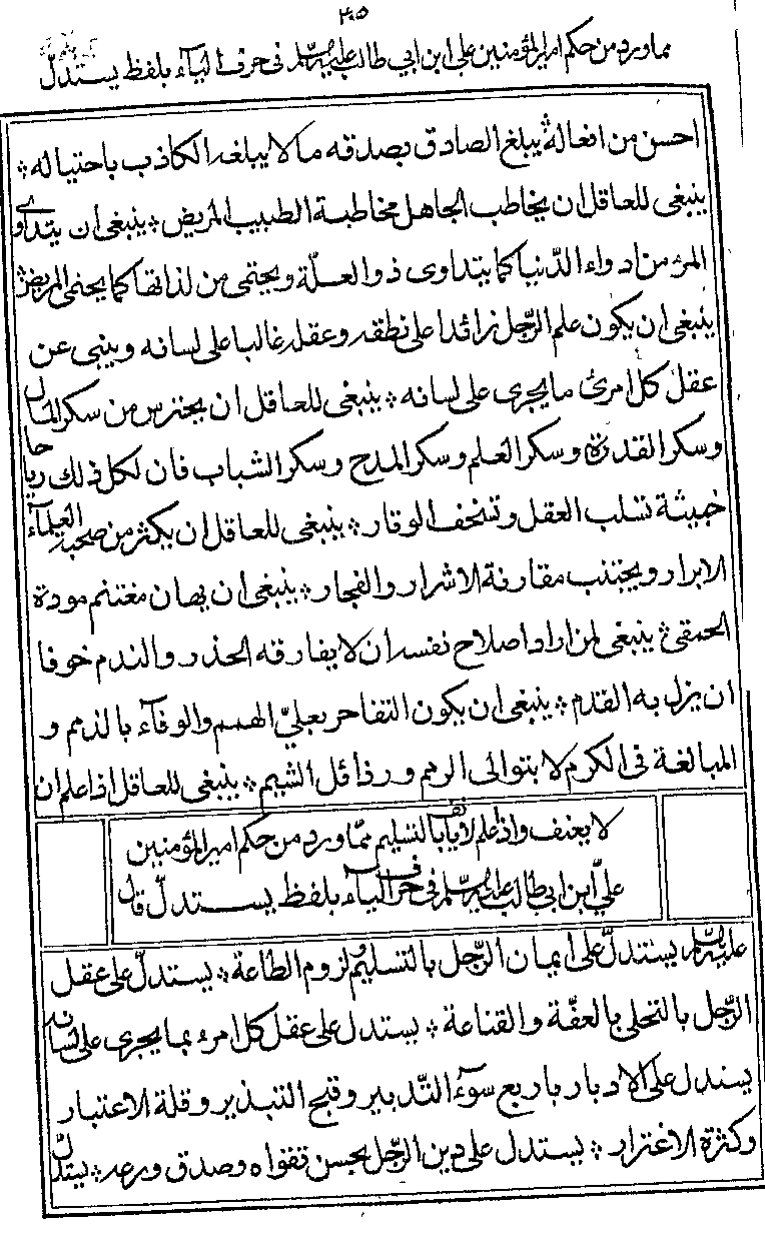 ٣٠٥
مما ورد من حكم امير المؤمنين على ابن ابي طالب عليه السلام فى حرف الياء بلفظ يستدلّ
احسن من افعاله ۞ يبلغ الصادق بصدقه ما لا يبلغه الكاذب باحتياله ۞
ينبغى للعاقل ان يخاطب الجاهل مخاطبة الطبيب المريض ۞ ينبغى ان يتداوى
المرء من ادواء الدّنيا كما يتداوى ذو العلّة ويحتمى من لذاتها كما يحتمى المريض ۞
ينبغى ان يكون علم الرّجل زائدا على نطقه وعقله غالبا على لسانه وينبى عن
عقل كل امرئ ما يجرى على لسانه ۞ ينبغى للعاقل ان يحترس من سكر المال
وسكر القدرة وسكر العلم وسكر المدح وسكر الشباب فان لكل ذلك رياحا
خبيثة تسلب العقل وتستخف الوقار ۞ ينبغى للعاقل ان يكثر من صحبة العلماء
الابرار ويجتنب مقارفة الاشرار والفجار ۞ ينبغى ان يهان مغتنم مودة
الحمقى ۞ ينبغى لمن اراد اصلاح نفسه ان لا يفارقه الحذر والندم خوفا
ان يزل به القدم ۞ ينبغى ان يكون التفاخر بعلىّ الهمم والوفاء بالذمم و
المبالغة فى الكرم لا بتوالى الرمم ورذائل الشيم ۞ ينبغى للعاقل اذا علم ان
لا يعنف واذ علم لا يأنف بالتسليم ممّا ورد من حكم امير المؤمنين
علىّ ابن ابي طالب عليه السلام فى حرف الياء بلفظ يستدلّ قال
عليه السلام يستدلّ على ايمان الرّجل بالتسليم ولزوم الطاعة ۞ يستدلّ على عقل
الرّجل بالتحلى بالعفّة والقناعة ۞ يستدل على عقل كل امرء بما يجرى على لسانه
يستدل على الادبار باربع سوء التّدبير وقبح التبذير وقلة الاعتبار
وكثرة الاغترار ۞ يستدل على دين الرّجل بحسن تقواه وصدق ورعه ۞ يستدلّ